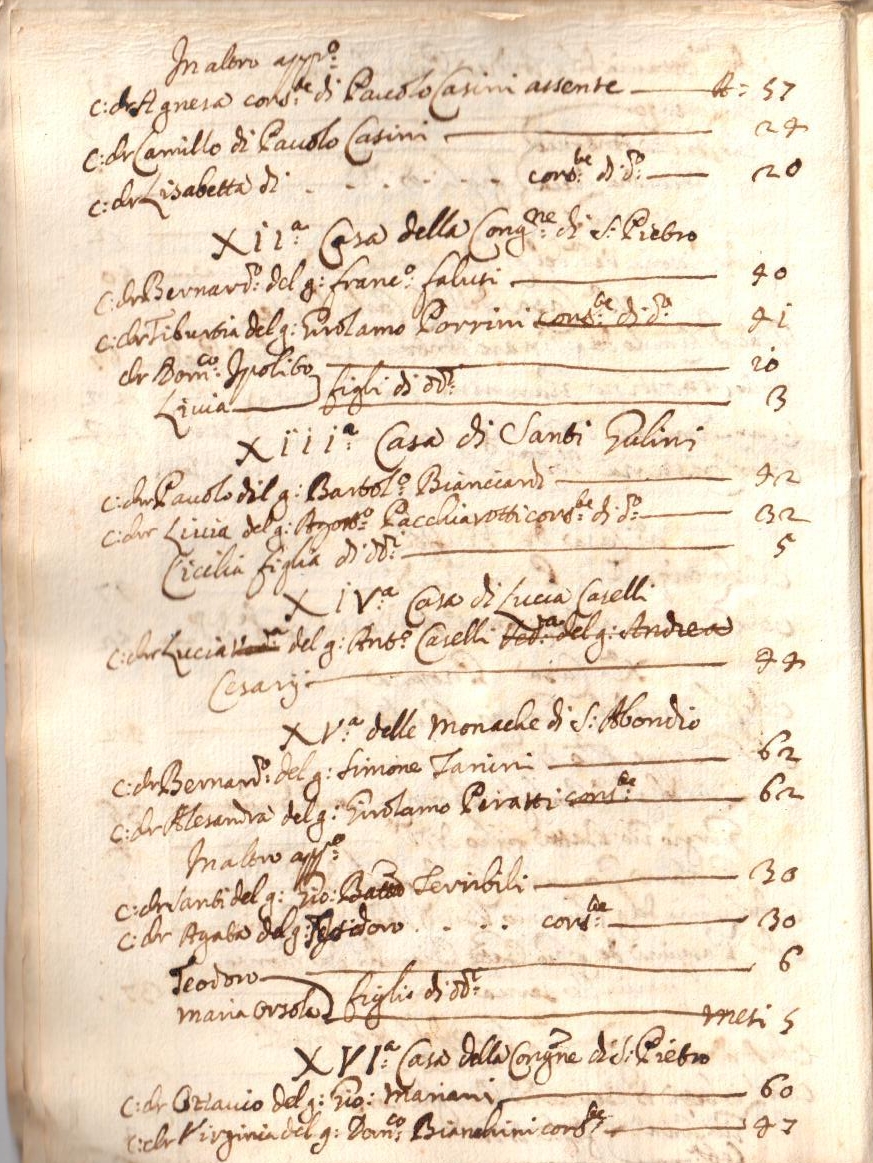 In altro app.º
C: cr Agnesa cons.te di Pavolo Casini assente — A: 57
C: cr Camillo di Pavolo Casini — 24
C: cr Lisabetta di . . . . . . . cons.te di d.º — 20
XII.a Casa della Cong.ne di S: Pietro
C: cr Bernard.º del q: Franc.º Falusi — 40
C: cr Tiburtia del q: Girolamo Porrini cons.te di d.º — 41
cr Dom.co Ipolito — 10
Livia — figli di dd.i — 3
XIII.a Casa di Santi Gulini
C: cr Pavolo del q: Bartol.º Bianciardi — 42
C: cr Livia del q: Agost.º Pacchiarotti cons.te di d.º — 32
Cicilia figlia di dd.i — 5
XIV.a Casa di Lucia Caselli
C: cr Lucia del q: Ant.º Caselli Ved.a del q: Andrea
Cesarij — 44
XV.a delle Monache di S: Abondio
C: cr Bernard.º del q: Simone Tanini — 62
C: cr Alesandra del q: Girolamo Peratti cons.te — 62
In altro app.º
C: cr Santi del q: Gio: Batta Terribili — 30
C: cr Agata del q: . . . . cons.te — 30
Teodoro — 6
Maria Orsola — figlio di dd.i — mesi 5
XVI.a Casa della Cong.ne di S: Pietro
C: cr Ottavio del q: Gio: Mariani — 60
C: cr Virginia del q: Dom.co Bianchini cons.te — 47